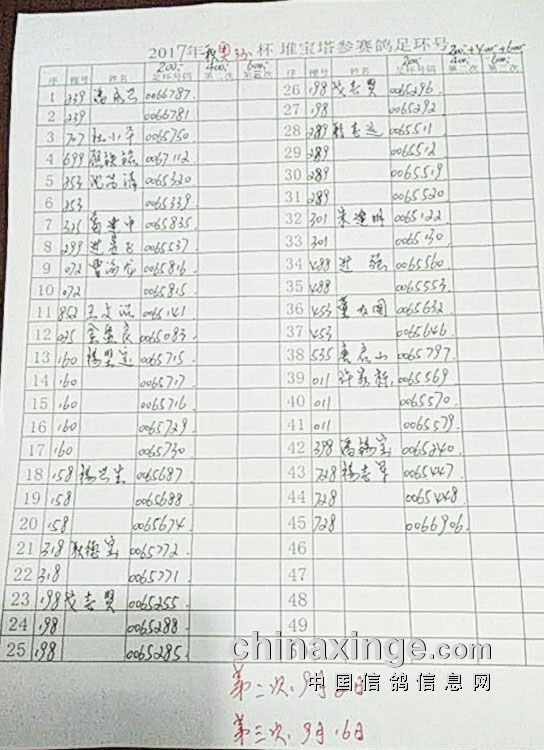 2017年秋奥汾杯 堆宝塔参赛鸽足环号 200+400+600
200 400 600 200 400 600
序 棚号 姓名 足环号码 第二次 第三次 序 棚号 姓名 足环号码 第二次 第三次
1 239 0066787
2 239 0066781
3 707 杜小平 0065750
4 699 0067112
5 253 0065320
6 253 0065339
7 325 葛建中 0065835
8 299 0065537
9 072 曹海龙 0065816
10 072 0065815
11 852 王文 0065141
12 025 金 良 0065083
13 160 杨 0065715
14 160 0065717
15 160 0065716
16 160 0065729
17 160 0065730
18 158 杨兴生 0065687
19 158 0065688
20 158 0065674
21 318 狄德宝 0065772
22 318 0065771
23 198 戈志贤 0065255
24 198 0065288
25 198 0065285
26 198 戈志贤 0065296
27 198 0065292
28 289 0065511
29 289 0065512
30 289 0065519
31 289 0065520
32 301 宋建明 0065122
33 301 0065130
34 488 进强 0065560
35 488 0065553
36 453 董 国 0065632
37 453 0065646
38 535 山 0065797
39 011 许 新 0065569
40 011 0065570
41 011 0065579
42 398 潘锡宝 0065240
43 728 杨志军 0065447
44 728 0065448
45 728 0066906
46
47
48
49
chinaxinge.com
中国信鸽信息网
第二次: 9月 日
第三次: 9月16日